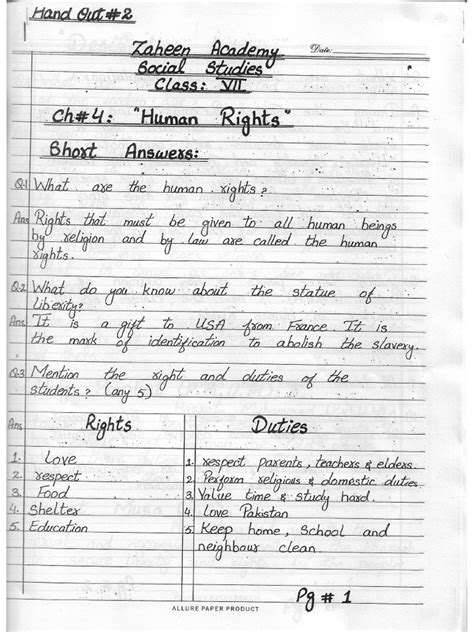 Hand Out # 2
Zaheen Academy
Date:
Social Studies
Class: VII
Ch#4: "Human Rights"
Short Answers:
Q.1 What are the human rights?
Ans Rights that must be given to all human beings
by religion and by law are called the human
rights.
Q.2 What do you know about the statue of
liberity?
Ans. It is a gift to USA from France. It is
the mark of identification to abolish the slavery.
Q.3 Mention the right and duties of the
students? (any 5)
Ans Rights Duties
1. Love 1. respect parents, teachers & elders.
2. respect 2. Perform religious & domestic duties.
3. Food 3. Value time & study hard.
4. Shelter 4. Love Pakistan
5. Education 5. Keep home, School and
neighbour clean.
Pg # 1
ALLURE PAPER PRODUCT